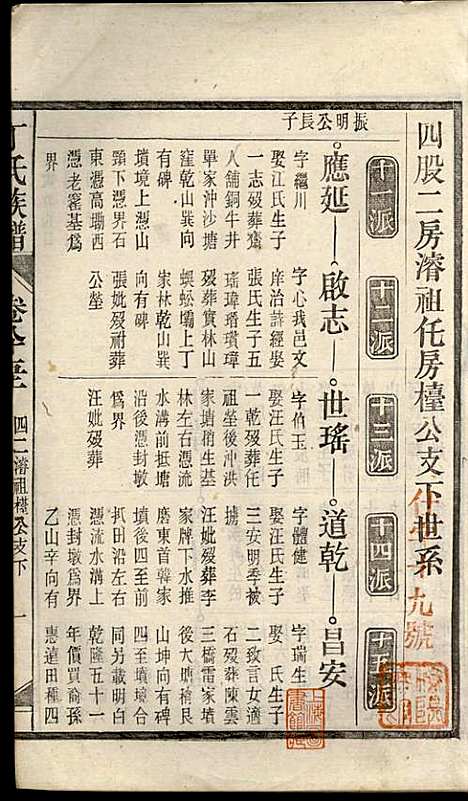 四股二房濬祖仛房檯公支下世系
十一派
十二派
十三派
十四派
十五派
振明公長子
應延
啟志
世瑤
道乾
昌安
字繼川
娶汪氏生子
一志歿葬齋
人舖銅牛井
單家沖沙塘
窪乾山巽向
有碑
墳境上憑山
頸下憑界石
東憑高塥西
憑老窰基爲
界
字心我邑文
庠治詩經娶
張氏生子五
瑤瑋瑨璜璋
歿葬實林山
蜈蚣壩上丁
家林乾山巽
向有碑
張妣歿祔葬
公塋
字伯玉
娶汪氏生子
一乾歿葬任
祖塋後沖洪
家塘稍生塋
林左右憑流
水溝前抵塘
沿後憑封墩
爲界
汪妣歿葬
字體健
娶汪氏生子
三安明季被
擄
汪妣歿葬李
家牌下水推
磨東首韓家
墳後四至前
抵田沿左右
憑流水溝上
憑封墩爲界
乙山辛向有
字瑞生
娶 氏生子
二致言女適
石歿葬陳雲
三橋雷家墳
後大塘稍艮
山坤向有碑
四至墳境合
同另載明白
乾隆五十一
年閤族買俞孫
惠遠田種四
丁氏族譜
四二濬祖檯公支下
一